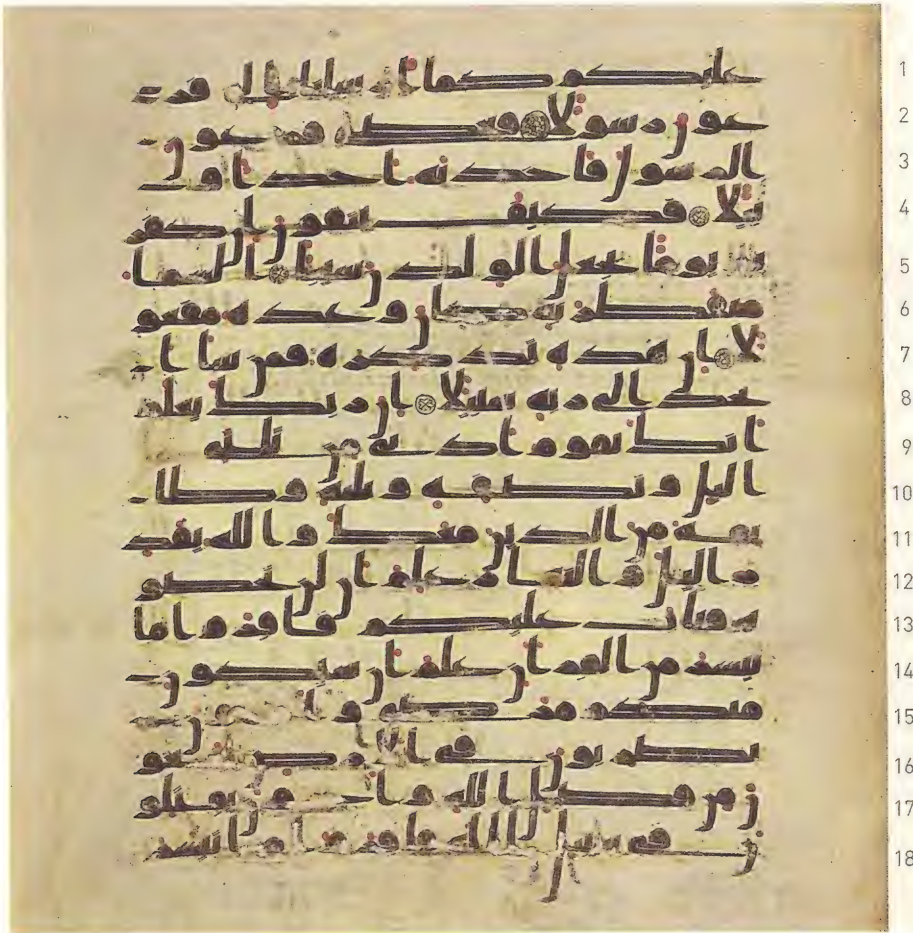 1 عليكم كما ارسلنا الى فر
2 عون رسولا فعصى فرعون
3 الرسول فاخذنه اخذا و
4 بيلا فكيف تتقون ان كفر
5 تم يوما يجعل الولدن شيبا السما
6 منفطر به كان وعده مفعو
7 لا ان هذه تذكرة فمن شا ا
8 تخذ الى ربه سبيلا ان ربك يعلم
9 انك تقوم ادنى من ثلثي
10 اليل ونصفه وثلثه وطا
11 ئفة من الذين معك والله يقد
12 ر اليل والنهار علم ان لن تحصو
13 ه فتاب عليكم فاقروا ما
14 تيسر من القران علم ان سيكون
15 منكم مرضى واخرون
16 يضربون في الارض يبتغو
17 ن من فضل الله واخرون يقتلو
18 ن في سبيل الله فاقروا ما تيسر